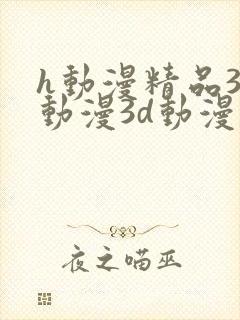 h動漫精品3
動漫3d動漫
夜之喵巫